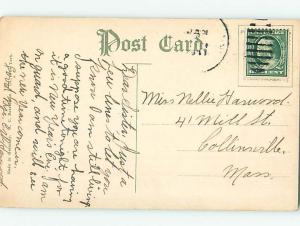 Post Card
JAN
Dear Sister, Just a
few lines to let you
know I am still living.
I suppose you are having
a good time tonight for
it is New Year's Eve. I am
on guard, and will see
the new year come in.
Miss Nellie Harwood.
41 Mill St.
Collinsville.
Mass.